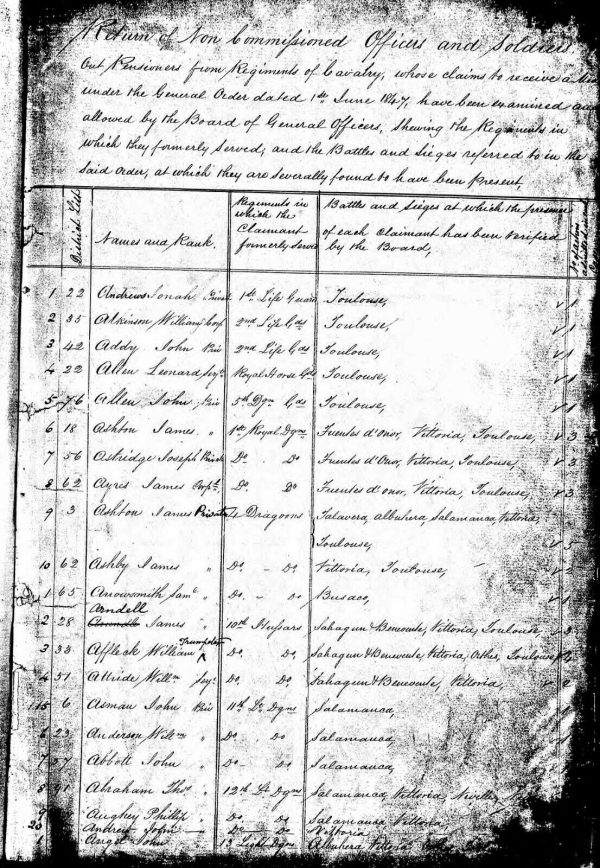 Return of Non Commissioned Officers and Soldiers,
Out Pensioners from Regiments of Cavalry, whose claims to receive a
under the General Order dated 1st June 1847, have been examined and
allowed by the Board of General Officers, Shewing the Regiments in
which they formerly Served, and the Battles and Sieges referred to in the
Said Order, at which they are Severally found to have been Present,
District List
Names and Rank.
Regiments in
which the
Claimant
formerly Served
Battles and Sieges at which the presence
of each Claimant has been Verified
by the Board,
1 22 Andrews Jonah Privt 1st Life Guard Toulouse, √ 1
2 35 Atkinson William Corpl 2nd Life Gds Toulouse, √ 1
3 42 Addy John Priv 2nd Life Gds Toulouse, √ 1
4 22 Allen Leonard Serjt Royal Horse Gds Toulouse, √ 1
5 76 Allen John Priv 5th Dgn Gds Toulouse, √ 1
6 18 Ashton James " 1st Royal Dgns Fuentes d'onor, Vittoria, Toulouse, √ 3
7 56 Astridge Joseph Private Do Do Fuentes d'Onor, Vittoria, Toulouse, √ 3
8 62 Ayres James Corpl Do Do Fuentes d'onor, Vittoria, Toulouse, √ 3
9 3 Ashton James Private 4 Dragoons Talavera, Albuhera, Salamanca, Vittoria,
Toulouse, √ 5
10 62 Ashby James " Do - Do Vittoria, Toulouse, √ 2
1 65 Arrowsmith Saml " Do - Do Busaco, √ 1
Arndell
2 28 James " 10th Hussars Sahagun & Benevente, Vittoria, Toulouse, 3
Trumpeter
3 33 Affleck William Do, Do, Sahagun & Benevente, Vittoria, Orthes, Toulouse √ 4
4 51 Attride Willm Serjt Do Do, Sahagun & Benevente, Vittoria, √ 2
115 6 Asman John Priv 11th Lt Dgns Salamanca, 1
6 23 Anderson Willm " Do . Do Salamanca, 1
7 57 Abbott John " Do - Do Salamanca,
8 Abraham Thos " 12th Lt Dgns Salamanca, Vittoria, Nivelle,
9 Aughey Philip " Do, Do, Salamanca, Vittoria,
20 Andrew John Do - Do Vittoria
1 Angel John 13 Light Dgns Albuhera, Vittoria,